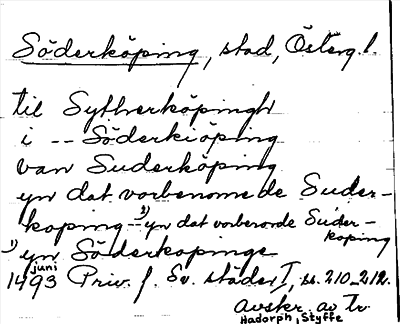 Söderköping, stad, Österg.l.
til Sytherköpingh
i -- Söderkiöping
van Suderköping
yn dat vorbenomede Suder-
koping - 2) yn dat vorberorde Suder-
koping
1) yn Söderkopinge
1493 juni Priv. f. Sv. städer I, ss. 210-212.
Avskr. av tr.
Hadorph, Styffe